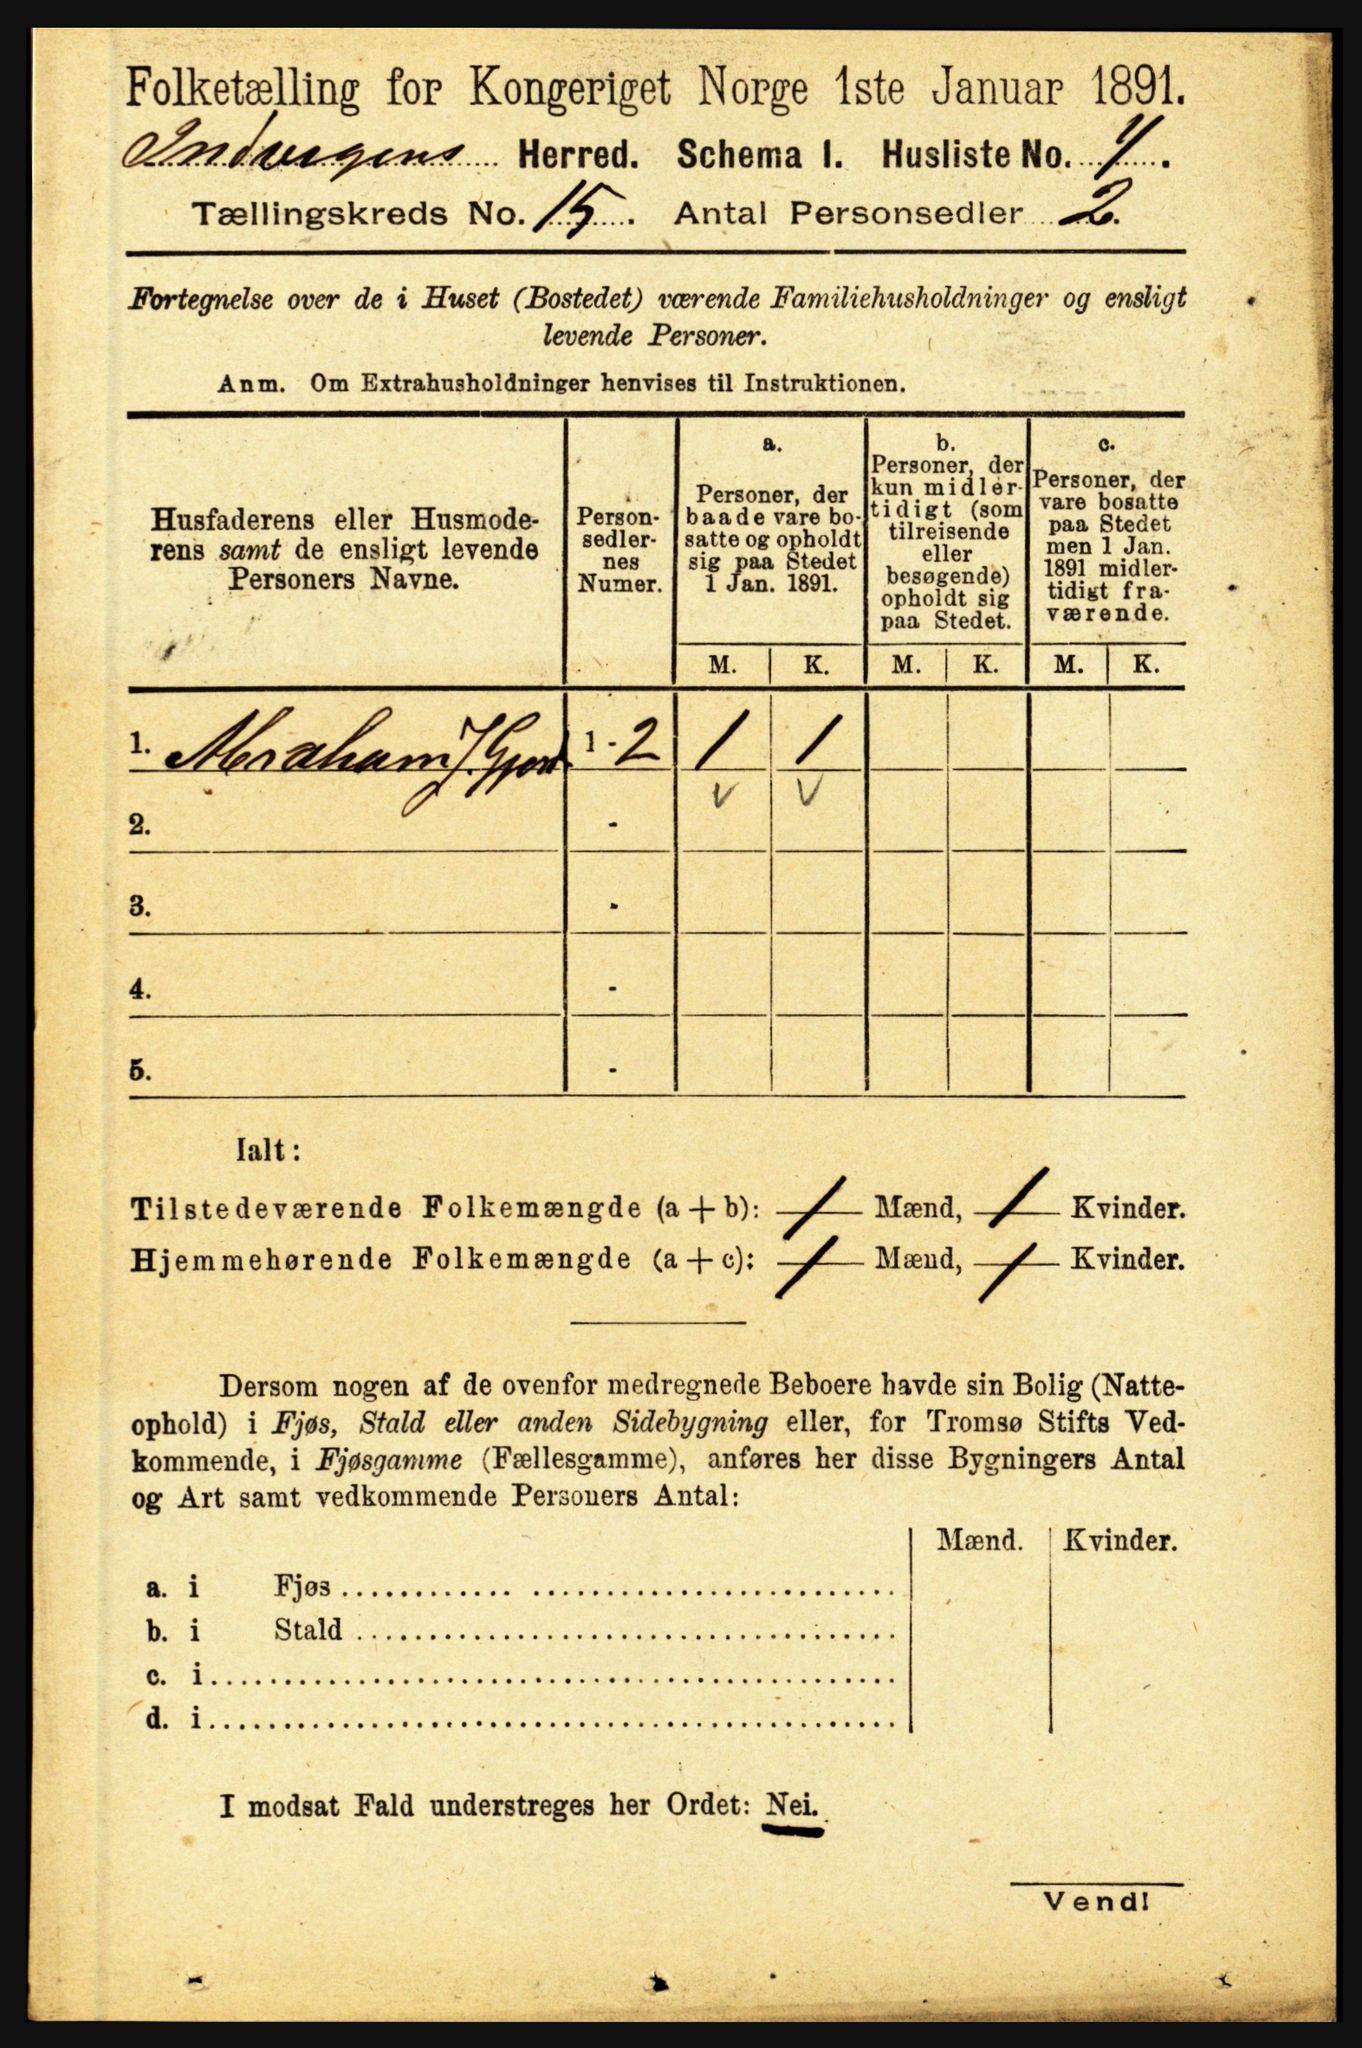 Folketælling for Kongeriget Norge 1ste Januar 1891.
Indvigens Herred. Schema I. Husliste No. 4.
Tællingskreds No. 15. Antal Personsedler 2.
Fortegnelse over de i Huset (Bostedet) værende Familiehusholdninger og ensligt
levende Personer.
Anm. Om Extrahusholdninger henvises til Instruktionen.
Husfaderens eller Husmode-
rens samt de ensligt levende
Personers Navne.
Person-
sedler-
nes
Numer.
a.
Personer, der
baade vare bo-
satte og opholdt
sig paa Stedet
1 Jan. 1891.
b.
Personer, der
kun midler-
tidigt (som
tilreisende
eller
besøgende)
opholdt sig
paa Stedet.
c.
Personer, der
vare bosatte
paa Stedet
men 1 Jan.
1891 midler-
tidigt fra-
værende.
M. K. M. K. M. K.
1. Abraham J. 1 - 2 1 1
v v
2. -
3. -
4. -
5. -
Ialt:
Tilstedeværende Folkemængde (a + b): 1 Mænd, 1 Kvinder.
Hjemmehørende Folkemængde (a + c): 1 Mænd, 1 Kvinder.
Dersom nogen af de ovenfor medregnede Beboere havde sin Bolig (Natte-
ophold) i Fjøs, Stald eller anden Sidebygning eller, for Tromsø Stifts Ved-
kommende, i Fjøsgamme (Fællesgamme), anføres her disse Bygningers Antal
og Art samt vedkommende Personers Antal:
Mænd. Kvinder.
a. i Fjøs
b. i Stald
c. i
d. i
I modsat Fald understreges her Ordet: Nei.
Vend!